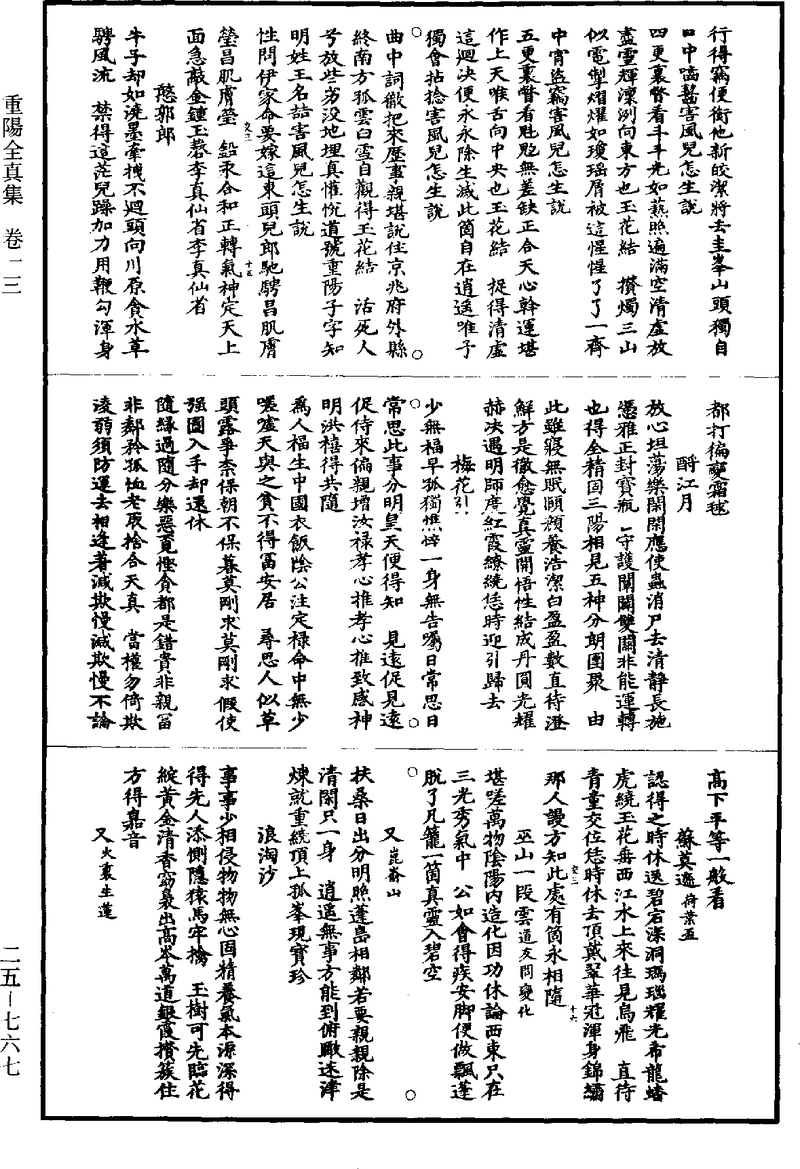 行得竊便銜他新皎潔將去圭峯山頭獨自
口中嚙齧害風兒怎生說
四更裏瞥看斗斗光如爇照遍滿空清虛放
盡靈輝凜冽向東方也玉花結 攢燭三山
似電掣熠燿如瓊瑶屑被這惺惺了了一齊
中宵盜竊害風兒怎生說
五更裏瞥看甦甦無差缺正合天心幹運堪
作上天喉舌向中央也玉花結 捉得清虛
這迴決便永永除生滅此箇自在逍遥唯予
獨會拈捻害風兒怎生說
曲中詞徹把來歷事親堪說住京兆府外縣
終南方孤雲白雪自觀得玉花結 活死人
兮放些劣没地埋真懽悅道號重陽子字知
明姓王名喆害風兒怎生說
性問伊家命要嫁這東頭兒郎馳騁昌肌膚
瑩昌肌膚瑩 鉛汞合和正轉氣神定天上
面急敲金鍾玉磬李真仙省李真仙省
憨郭郎
牛子却如澆墨牽拽不迴頭向川原貪水草
騁風流 禁得這茫兒躁加力用鞭勾渾身
都打徧變霜毬
酹江月
放心坦蕩樂閑閑應使蟲消尸去清靜長施
憑雅正封寶瓶一守護闡關雙關非能運轉
也得全精固三陽相見五神分朗團聚 由
此雖寢無眠頤顏養浩潔白盈盈數直待澄
鮮方是徹愈覺真靈開悟性結成丹圓光耀
赫决遇明師度紅霞繚繞恁時迎引歸去
梅花引
少無福早孤獨憔悴一身無告囑日常思日
常思此事分明皇天便得知 見遠促見遠
促侍來偏親增汝禄孝心推孝心推致感神
明洪禧得共隨
爲人福生中國衣飯陰公注定禄命中無少
嗟嘘天與之貧不得富安居 尋思人似草
頭露爭柰保朝不保暮莫剛求莫剛求假使
强圖入手却還休
隨緣過隨分樂惡覓慳貪都是錯貴非親富
非鄰矜孤恤老取捨合天真 當權勿倚欺
淩弱須防運去相逢著減欺慢減欺慢不論
高下平等一般看
蘇莫遮荷葉盃
認得之時休送碧宕深洞瑪瑙耀光希龍蟠
虎繞玉花垂西江水上來往見烏飛 直待
青童交位恁時休去頂戴翠華冠渾身錦繡
那人謾方知此處有箇永相隨
巫山一段雲道友問變化
堪嗟萬物陰陽内造化因功休論西東只在
三光秀氣中 公如會得疾安脚便做飄蓬
脫了凡籠一箇真靈入碧空
又崑崙山
扶桑日出分明照蓬島相鄰若要親親除是
清閑只一身 逍遥無事方能到俯瞰迷津
煉就重繞頂上孤峯現寶珍
浪淘沙
事事少相侵物物無心固精養氣本源深得
得先人添惻隱猿馬牢擒 玉樹可先臨花
綻黄金清香窈裊出高岑萬道銀霞攢簇住
方得嘉音
又火裏生蓮
重陽全真集 卷一三
二五－七六七